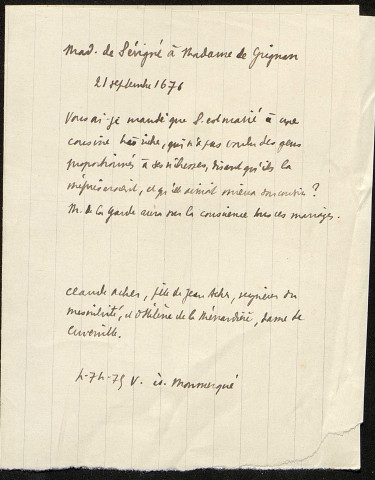 Mad. de Sévigné à Madame de Grignan
21 septembre 1676
Vous ai-je mandé que S. est marié à une
cousine très riche, qui n'a pas voulu des gens
proportionnés à ses richesses, disant qu'ils la
mépriseraient, et qu'elle aimait mieux son cousin ?
M. de la Garde aura sur la conscience tous ces mariages.
Claude Acher, fille de Jean Acher, seigneur du
et d'Hélène de la Ménardière, dame de
4-74-75 V. éd. Monmerqué